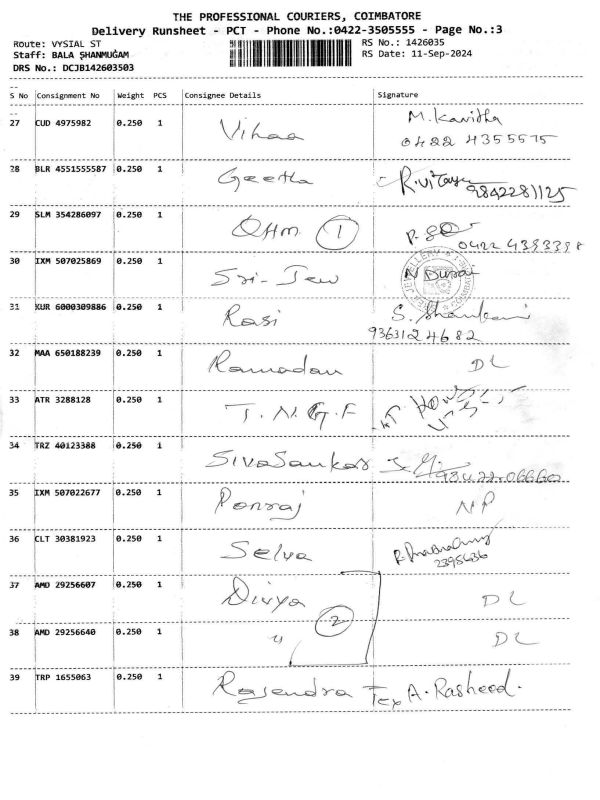 THE PROFESSIONAL COURIERS, COIMBATORE
Delivery Runsheet - PCT - Phone No.:0422-3505555 - Page No.:3
Route: VYSIAL ST RS No.: 1426035
Staff: BALA SHANMUGAM RS Date: 11-Sep-2024
DRS No.: DCJB142603503
S No Consignment No Weight PCS Consignee Details Signature
27 CUD 4975982 0.250 1 Vihaa M. Kavitha
0422 4355575
28 BLR 4551555587 0.250 1 Geetha R. Vijaya
9842281125
29 SLM 354286097 0.250 1 OHM 1
0422 4393398
30 IXM 507025869 0.250 1 Sri-Jew N Durai
31 KUR 6000309886 0.250 1 Rasi S.
9363124682
32 MAA 650188239 0.250 1 Ramadau DL
33 ATR 3288128 0.250 1 T.N.G.F
34 TRZ 40123388 0.250 1 SivaSankar
98422-06660
35 IXM 507022677 0.250 1 Ponraj NP
36 CLT 30381923 0.250 1 Selva
2395636
37 AMD 29256607 0.250 1 Divya 2 DL
38 AMD 29256640 0.250 1 " DL
39 TRP 1655063 0.250 1 Rajendra Tex A. Rasheed.